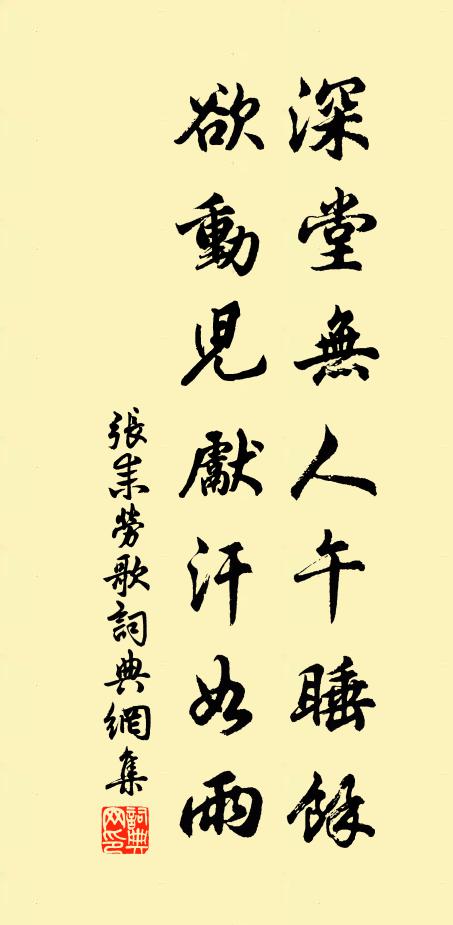 深堂無人午睡餘
欲動兒獻汗如雨
張耒勞歌詞典網集
詞典
网印